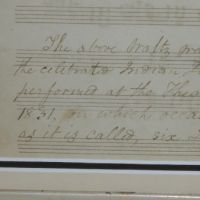 The above Waltz
the celibrated Indian
performed at the Thea
1831, on which occa
as it is called, six